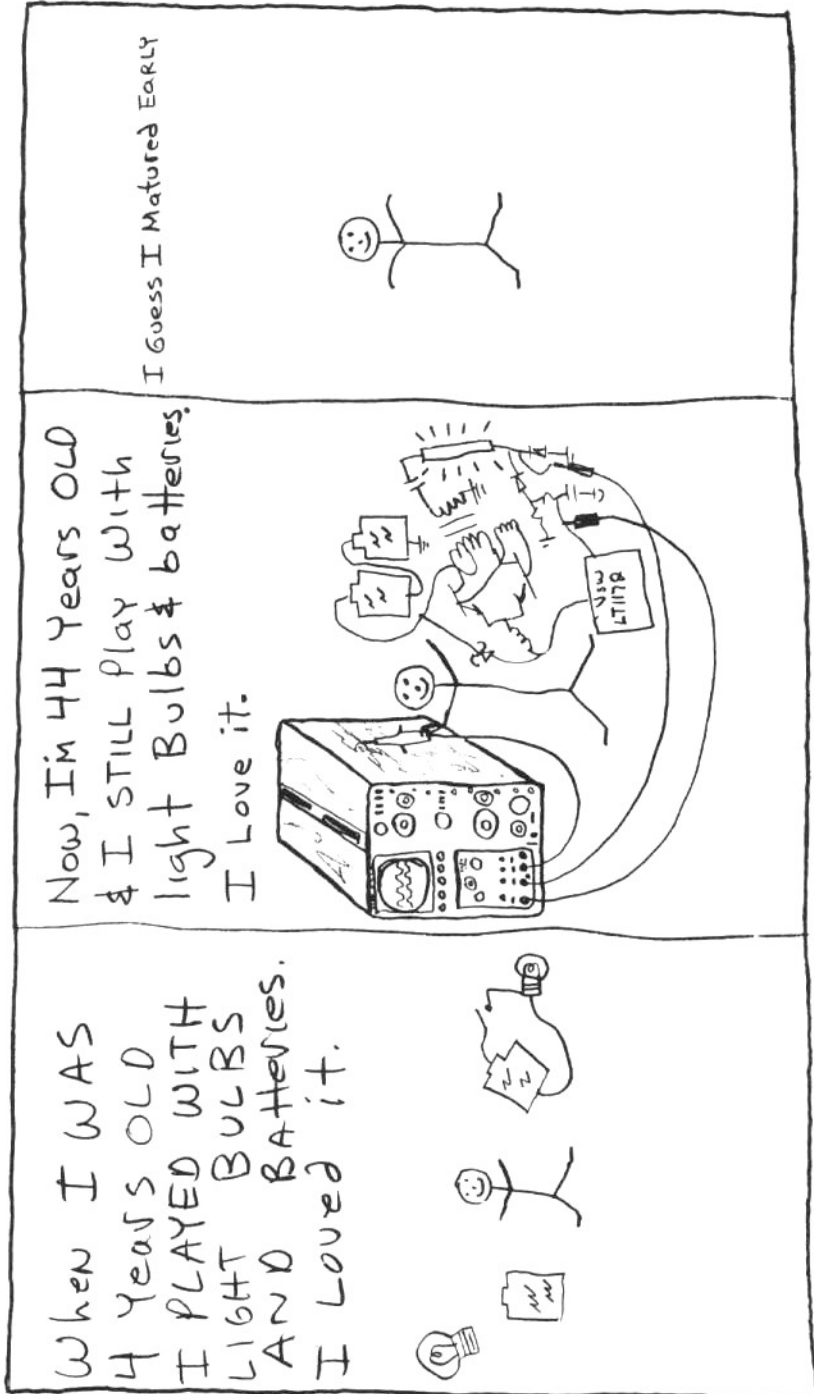 When I WAS
4 Years OLD
I PLAYED WITH
LIGHT BULBS
AND BAtteries.
I Loved it.
Now, I'm 44 Years OLD
& I STILL Play With
light Bulbs & batteries.
I Love it.
VSW
LT1172
I Guess I Matured EARLY